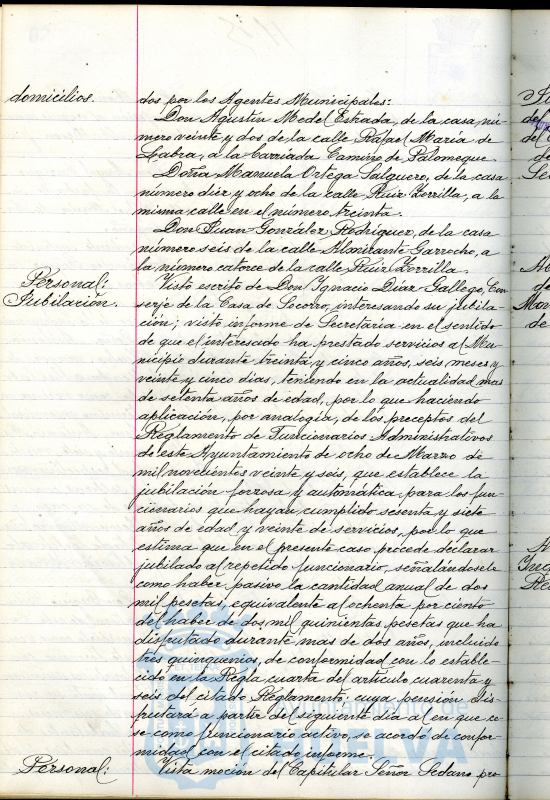 domicilios.
dos por los Agentes Municipales:
Don Agustín Medel Estrada, de la casa nú-
mero veinte y dos de la calle Rafael María de
Labra, a la barriada Camino de Palomeque.
Doña Manuela Ortega Salguero, de la casa
número diez y ocho de la calle Ruiz Zorrilla, a la
misma calle en el número treinta.
Don Juan González Rodríguez, de la casa
número seis de la calle Almirante Garrocho, a
la número catorce de la calle Ruiz Zorrilla.
Personal:
Jubilación.
Visto escrito de Don Ignacio Díaz Gallego, Con-
serje de la Casa de Socorro, interesando su jubila-
ción; visto informe de Secretaría en el sentido
de que el interesado ha prestado servicios al Mu-
nicipio durante treinta y cinco años, seis meses y
veinte y cinco días, teniendo en la actualidad mas
de setenta años de edad, por lo que haciendo
aplicación, por analogía, de los preceptos del
Reglamento de Funcionarios Administrativos
de este Ayuntamiento de ocho de Marzo de
mil novecientos veinte y seis, que establece la
jubilación forzosa y automática para los fun-
cionarios que hayan cumplido sesenta y siete
años de edad y veinte de servicios, por lo que
estima que en el presente caso procede declarar
jubilado al repetido funcionario, señalándosele
como haber pasivo la cantidad anual de dos
mil pesetas, equivalente al ochenta por ciento
del haber de dos mil quinientas pesetas que ha
disfrutado durante mas de dos años, incluido
tres quinquenios, de conformidad con lo estable-
cido en la Regla cuarta del artículo cuarenta y
seis del citado Reglamento; cuya pensión dis-
frutará a partir del siguiente día al en que ce-
se como funcionario activo, se acordó de confor-
midad con el citado informe.
Personal:
Vista moción del Capitular Señor Sedano pro
Ayuntamiento de
HUELVA